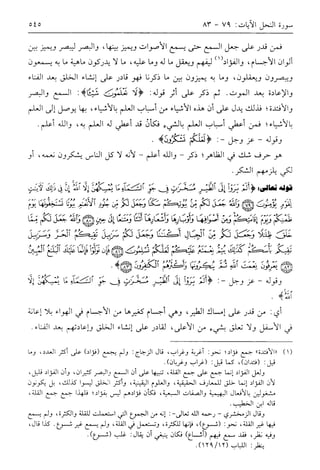 سورة النحل الآيات: ٧٩ - ٨٣ ٥٤٥
فمن قدر على جعل السمع حتى يسمع الأصوات ويميز بينها، والبصر ليبصر ويميز بين
ألوان الأجسام، والفؤاد(١) ليفهم ويعقل ما له وما عليه، ما لا يدركون ماهية ما به يسمعون
ويبصرون ويعقلون، وما به يميزون بين ما ذكرنا فهو قادر على إنشاء الخلق بعد الفناء
والإعادة بعد الموت. ثم ذكر على أثر قوله: ﴿لَا تَعْلَمُونَ شَيْئًا﴾: السمع والبصر
والأفئدة؛ فذلك يدل على أن هذه الأشياء من أسباب العلم بالأشياء، بها يوصل إلى العلم
بالأشياء؛ فمن أعطي أسباب العلم بالشيء فكأن قد أعطي له العلم به، والله أعلم.
وقوله - عز وجل -: ﴿لَعَلَّكُمْ تَشْكُرُونَ﴾.
هو حرف شك في الظاهر؛ ذكر - والله أعلم - لأنه لا كل الناس يشكرون نعمه، أو
لكي يلزمهم الشكر.
قوله تعالى: ﴿أَلَمْ يَرَوْا إِلَى الطَّيْرِ مُسَخَّرَاتٍ فِي جَوِّ السَّمَاءِ مَا يُمْسِكُهُنَّ إِلَّا اللَّهُ إِنَّ فِي ذَلِكَ لَآيَاتٍ
لِقَوْمٍ يُؤْمِنُونَ ﴿٧٩﴾ وَاللَّهُ جَعَلَ لَكُمْ مِنْ بُيُوتِكُمْ سَكَنًا وَجَعَلَ لَكُمْ مِنْ جُلُودِ الْأَنْعَامِ بُيُوتًا تَسْتَخِفُّونَهَا يَوْمَ
ظَعْنِكُمْ وَيَوْمَ إِقَامَتِكُمْ وَمِنْ أَصْوَافِهَا وَأَوْبَارِهَا وَأَشْعَارِهَا أَثَاثًا وَمَتَاعًا إِلَى حِينٍ ﴿٨٠﴾ وَاللَّهُ جَعَلَ
لَكُمْ مِمَّا خَلَقَ ظِلَالًا وَجَعَلَ لَكُمْ مِنَ الْجِبَالِ أَكْنَانًا وَجَعَلَ لَكُمْ سَرَابِيلَ تَقِيكُمُ الْحَرَّ وَسَرَابِيلَ
تَقِيكُمْ بَأْسَكُمْ كَذَلِكَ يُتِمُّ نِعْمَتَهُ عَلَيْكُمْ لَعَلَّكُمْ تُسْلِمُونَ ﴿٨١﴾ فَإِنْ تَوَلَّوْا فَإِنَّمَا عَلَيْكَ الْبَلَاغُ الْمُبِينُ
﴿٨٢﴾ يَعْرِفُونَ نِعْمَتَ اللَّهِ ثُمَّ يُنْكِرُونَهَا وَأَكْثَرُهُمُ الْكَافِرُونَ ﴿٨٣﴾﴾.
وقوله - عز وجل -: ﴿أَلَمْ يَرَوْا إِلَى الطَّيْرِ مُسَخَّرَاتٍ فِي جَوِّ السَّمَاءِ مَا يُمْسِكُهُنَّ إِلَّا
اللَّهُ﴾.
أي: من قدر على إمساك الطير، وهي أجسام كغيرها من الأجسام في الهواء بلا إعانة
في الأسفل ولا تعلق بشيء من الأعلى، لقادر على إنشاء الخلق وإعادتهم بعد الفناء.
(١) «الأفئدة» جمع فؤاد؛ نحو: أغربة وغراب، قال الزجاج: ولم يجمع (فؤاد) على أكثر العدد، وما
قيل: (فئدان)، كما قيل: (غراب وغربان).
ولعل الفؤاد إنما جمع على جمع القلة، تنبيها على أن السمع والبصر كثيران، وأن الفؤاد قليل،
لأن الفؤاد إنما خلق للمعارف الحقيقية، والعلوم اليقينية، وأكثر الخلق ليسوا كذلك، بل يكونون
مشغولين بالأفعال البهيمية والصفات السبعية، فكأن فؤادهم ليس بفؤاد؛ فلهذا جمع جمع القلة،
قاله ابن الخطيب.
وقال الزمخشري - رحمه الله تعالى-: إنه من الجموع التي استعملت للقلة والكثرة، ولم يسمع
فيها غير القلة، نحو: (شسوع)، فإنها للكثرة، وتستعمل في القلة، ولم يسمع غير شسوع. كذا قال،
وفيه نظر، فقد سمع فيهم (أشساع) فكان ينبغي أن يقال: غلب (شسوع).
ينظر: اللباب (١٢٩/١٢).